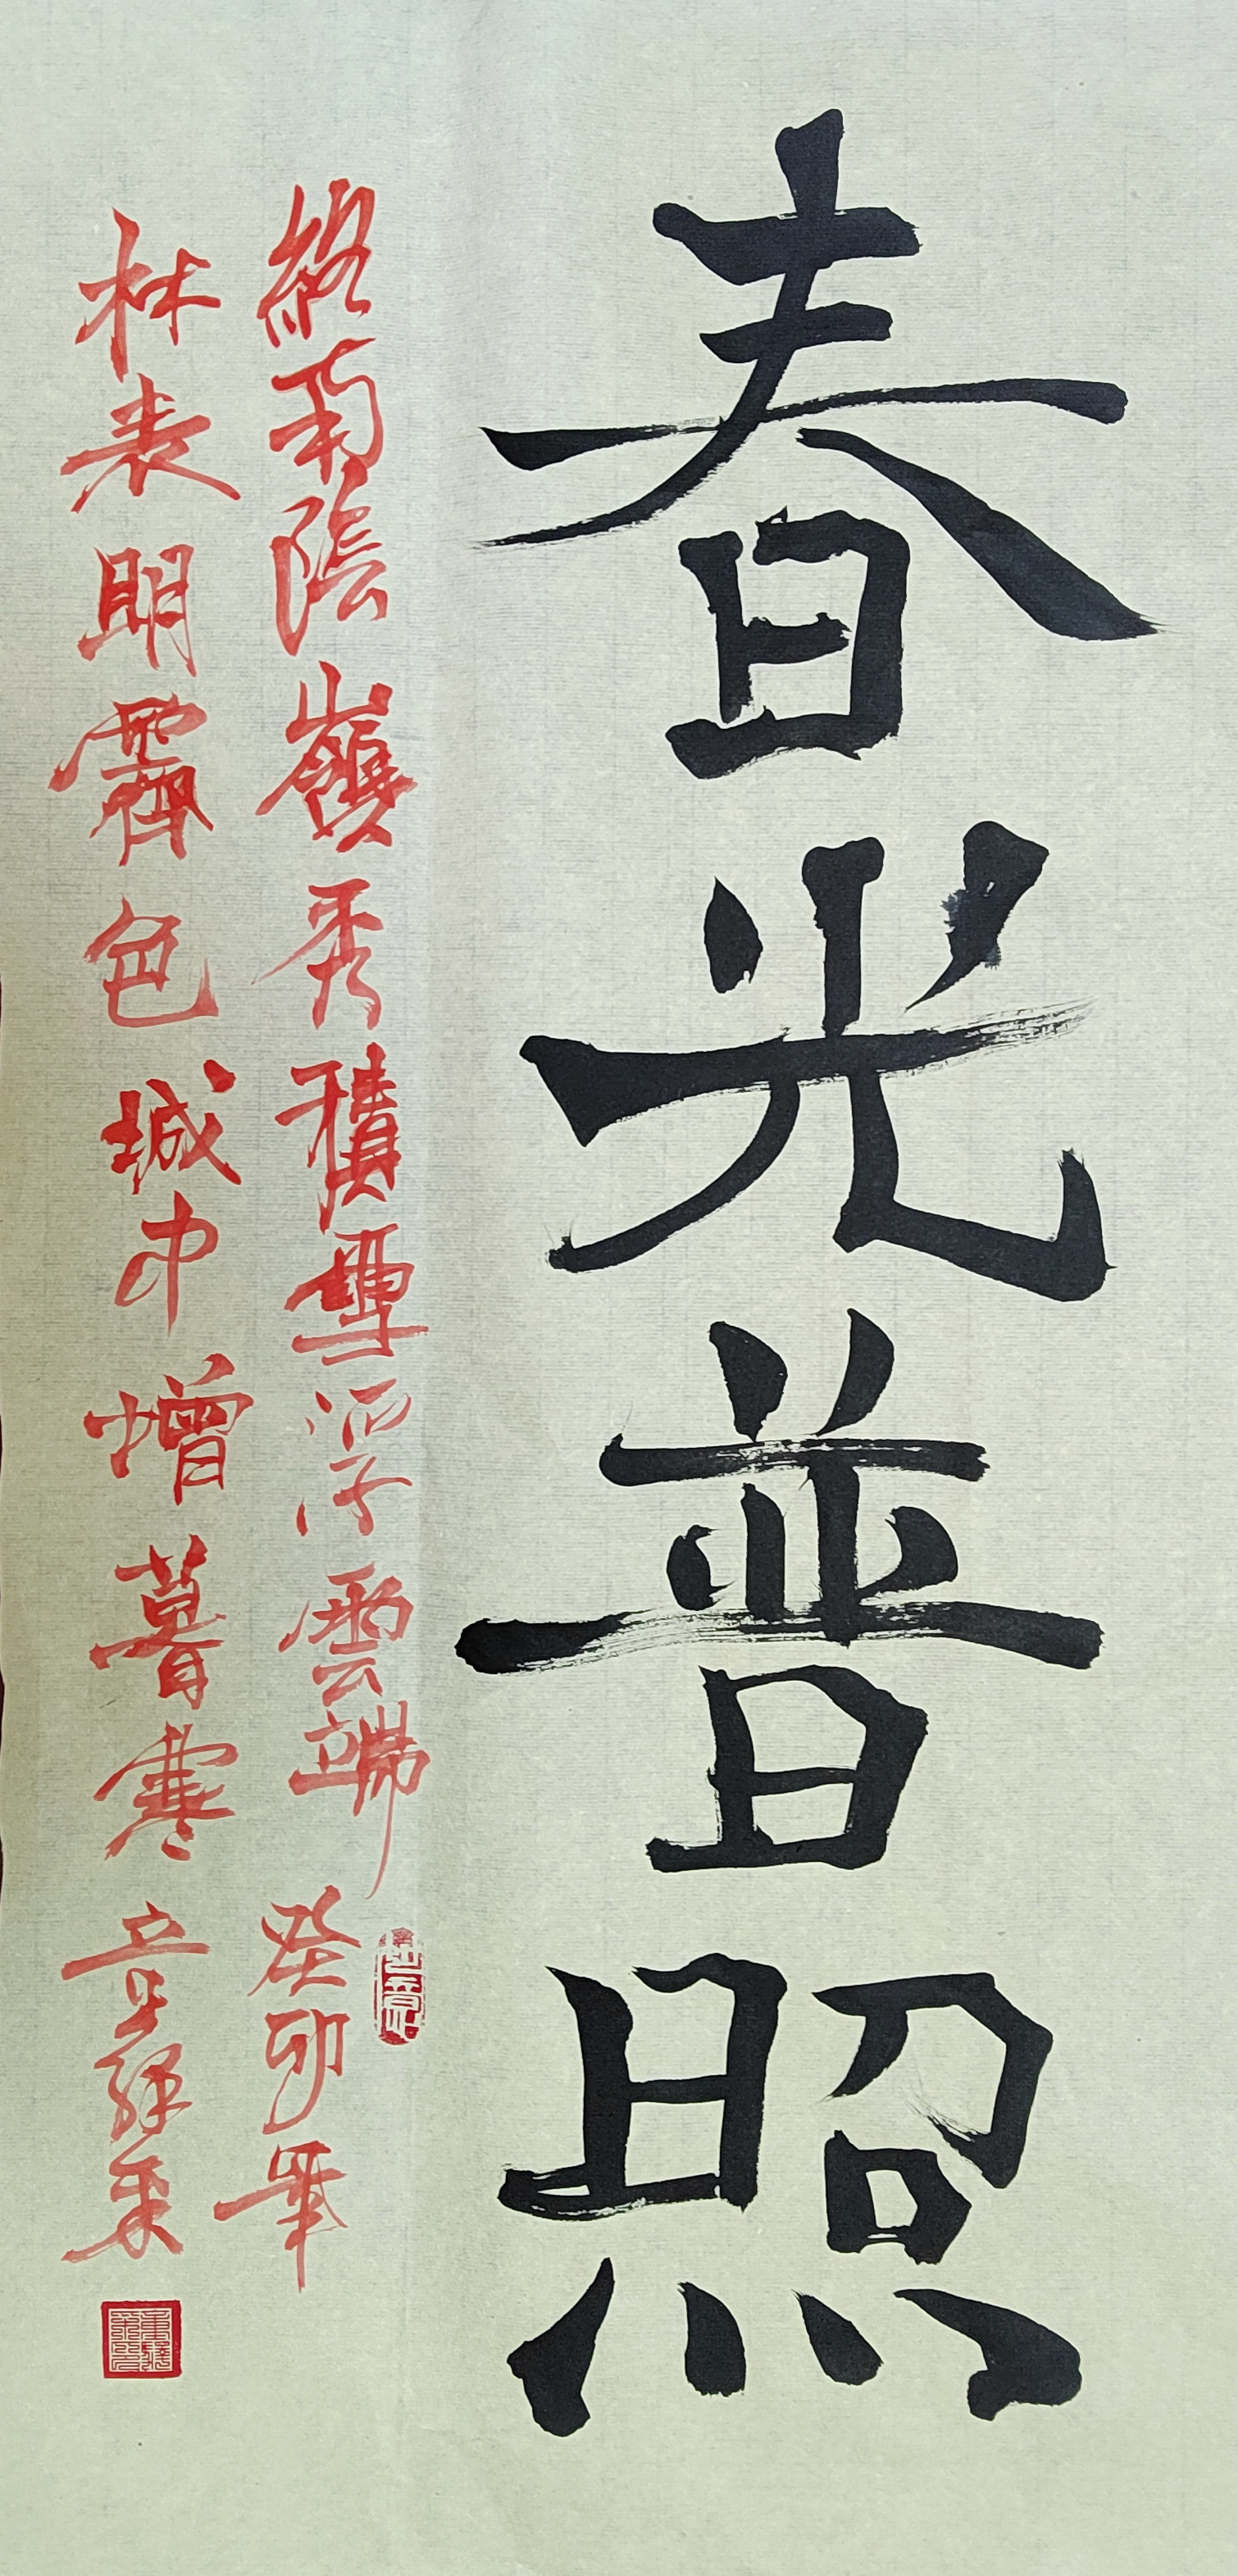 春光普照
終南陰嶺秀積雪浮雲端 癸卯年
林表明霽色城中增暮寒